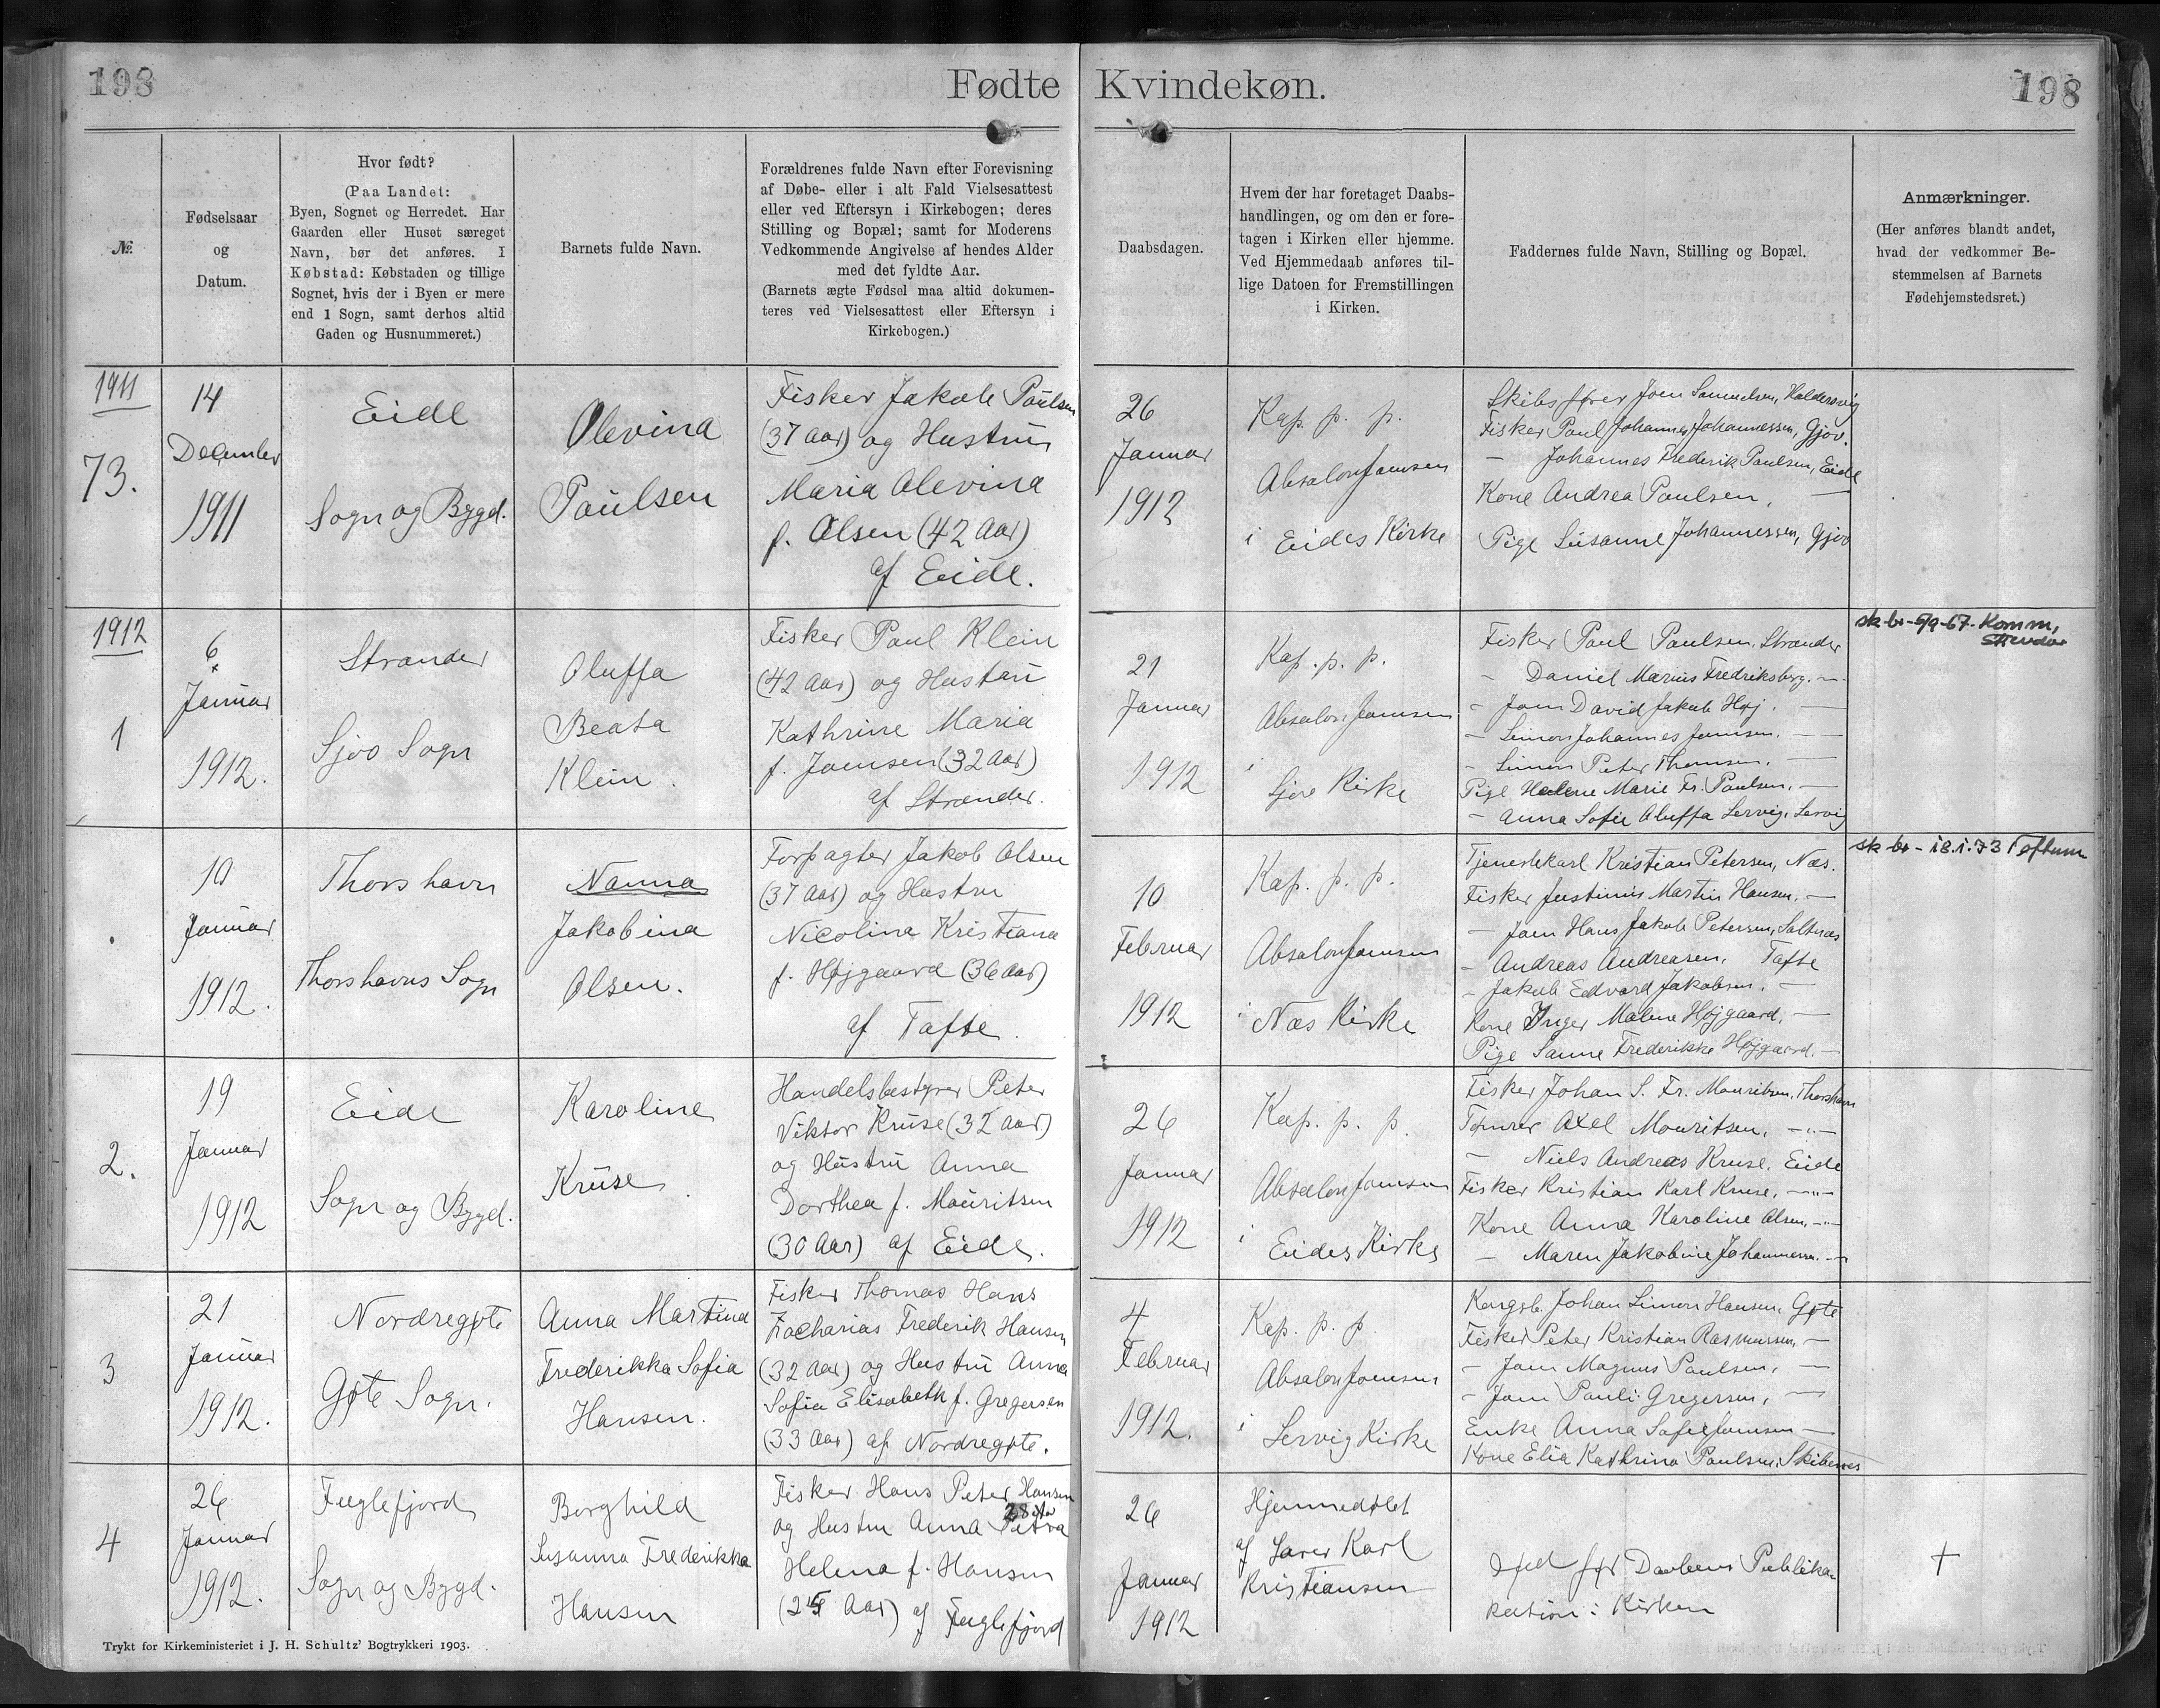 198
Fødte
Kvindekøn.
198
№
Fødselsaar
og
Datum.
Hvor født?
(Paa Landet:
Byen, Sognet og Herredet. Har
Gaarden eller Huset særeget
Navn, bør det anføres. I
Købstad: Købstaden og tillige
Sognet, hvis der i Byen er mere
end 1 Sogn, samt derhos altid
Gaden og Husnummeret.)
Barnets fulde Navn.
Forældrenes fulde Navn efter Forevisning
af Døbe- eller i alt Fald Vielsesattest
eller ved Eftersyn i Kirkebogen; deres
Stilling og Bopæl; samt for Moderens
Vedkommende Angivelse af hendes Alder
med det fyldte Aar.
(Barnets ægte Fødsel maa altid dokumen-
teres ved Vielsesattest eller Eftersyn i
Kirkebogen.)
Daabsdagen.
Hvem der har foretaget Daabs-
handlingen, og om den er fore-
tagen i Kirken eller hjemme.
Ved Hjemmedaab anføres til-
lige Datoen for Fremstillingen
i Kirken.
Faddernes fulde Navn, Stilling og Bopæl.
Anmærkninger.
(Her anføres blandt andet,
hvad der vedkommer Be-
stemmelsen af Barnets
Fødehjemstedsret.)
1911
73.
14
December
1911
Eide
Sogn og Bygd.
Olevina
Paulsen
Fisker Jakob Paulsen
(37 Aar) og Hustru
Maria Olevina
f. Olsen (42 Aar)
af Eide.
26
Januar
1912
Kap. p. p.
Absalon Joensen
i Eides Kirke
Skibsfører Joen Samuelsen, Haldersvig
Fisker Paul Johannes Johannessen, Gjov.
— Johannes Frederik Paulsen, Eide
Kone Andrea Paulsen, —
Pige Susanne Johannessen, Gjov
1912
1
6
Januar
1912.
Strænder
Sjov Sogn
Oluffa
Beata
Klein.
Fisker Paul Klein
(42 Aar) og Hustru
Kathrine Maria
f. Joensen (32 Aar)
af Strænder.
21
Januar
1912
Kap. p. p.
Absalon Joensen
i Sjov Kirke
Fisker Paul Paulsen, Strænder
- Daniel Marius Fredriksberg. —
- Joen David Jakob Høj. —
- Simon Johannes Joensen. —
- Simon Peter Thomsen. —
Pige Helene Marie Fr. Paulsen. —
- Anna Sofie Oluffa Lervig, Lervig
sk-br-6/9-67- Komm,
Strendur
10
Januar
1912.
Thorshavn
Thorshavns Sogn
Nanna
Jakobina
Olsen.
Forpagter Jakob Olsen
(37 Aar) og Hustru
Nicolina Kristiana
f. Højgaard (36 Aar)
af Tafte.
10
Februar
1912
Kap. p. p.
Absalon Joensen
i Næs Kirke
Tjenestekarl Kristian Petersen, Næs.
Fisker Justinus Martin Hansen. —
- Joen Hans Jakob Petersen, Saltnæs
- Andreas Andreasen, Tafte
- Jakob Edvard Jakobsen. —
Kone Inger Malene Højgaard. —
Pige Sanne Frederikke Højgaard. —
sk-br-18.1.73 Toftum
2.
19
Januar
1912
Eide
Sogn og Bygd.
Karoline
Kruse.
Handelsbestyrer Peter
Viktor Kruse (32 Aar)
og Hustru Anna
Dorthea f. Mouritsen
(30 Aar) af Eide.
26
Januar
1912
Kap. p. p.
Absalon Joensen
i Eides Kirke
Fisker Johan S. Fr. Mouritsen, Thorshavn
Tømrer Axel Mouritsen. —"—
— Niels Andreas Kruse, Eide
Fisker Kristian Karl Kruse, —"—
Kone Anna Karoline Olsen, —"—
— Maren Jakobine Johannessen. —
3
21
Januar
1912.
Nordregøte
Gøte Sogn.
Anna Martina
Frederikka Sofia
Hansen.
Fisker Thomas Hans
Zacharias Frederik Hansen
(32 Aar) og Hustru Anna
Sofia Elisabeth f. Gregersen
(33 Aar) af Nordregøte.
4
Februar
1912.
Kap. p. p.
Absalon Joensen
i Lervig Kirke
Kongsb. Johan Simon Hansen, Gøte
Fisker Peter Kristian Rasmussen, —
- Joen Magnus Paulsen, —
- Joen Pauli Gregersen, —
Enke Anna Sofie Joensen —
Kone Elia Kathrina Paulsen, Skibenes
4
26
Januar
1912.
Fuglefjord
Sogn og Bygd.
Borghild
Susanna Frederikka
Hansen
Fisker Hans Peter Hansen
28 Aar
og Hustru Anna Petra
Helena f. Hansen
(25 Aar) af Fuglefjord
26
Januar
1912
Hjemmedøbt
af Lærer Karl
Kristiansen
død før Daabens Publika
kation i Kirken
+
Trykt for Kirkeministeriet i J. H. Schultz' Bogtrykkeri 1903.